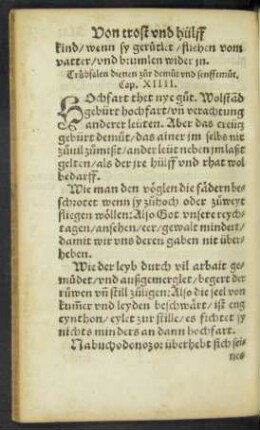 Von trost vnd hülff
kind/ wenn sy gerütlet/ fliehen vom
vatter/ vnd brumlen wider jn.
Trübsalen dienen zůr demůt vnd senfftmůt.
Cap. XIIII.
HOchfart thet nye gůt. Wolstãd
gebürt hochfart/ vñ verachtung
anderer leüten. Aber das creütz
gebürt demůt/ das ainer jm selbs nit
zůuil zůmißt/ ander leüt neben jm laßt
gelten/ als der jre hülff vnd rhat wol
bedarff.
Wie man den vöglen die fädern be⸗
schrotet wenn sy zůhoch oder zůweyt
fliegen wöllen: Also Got vnsere reych⸗
tagen/ ansehen/ eer/ gewalt mindert/
damit wir vns deren gaben nit über⸗
heben.
Wie der leyb durch vil arbait ge⸗
müdet/ vnd außgemerglet/ begert der
růwen vñ still zůligen: Also die seel von
kum̃er vnd leyden beschwärt/ ist eng
eynthon/ eylet zur stille/ es fichtet jy
nichts minders an dann hochfart.
Nabuchodonozor überhebt sich sei⸗
nes